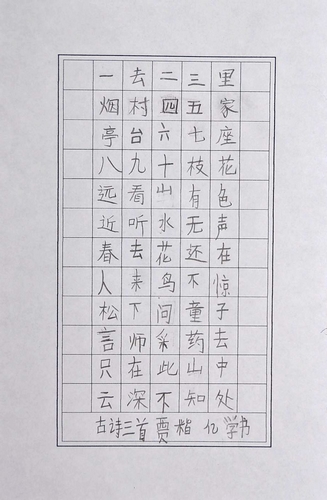 一去二三里
烟村四五家
亭台六七座
八九十枝花
远看山有色
近听水无声
春去花还在
人来鸟不惊
松下问童子
言师采药去
只在此山中
云深不知处
古诗三首 贾楷亿学书